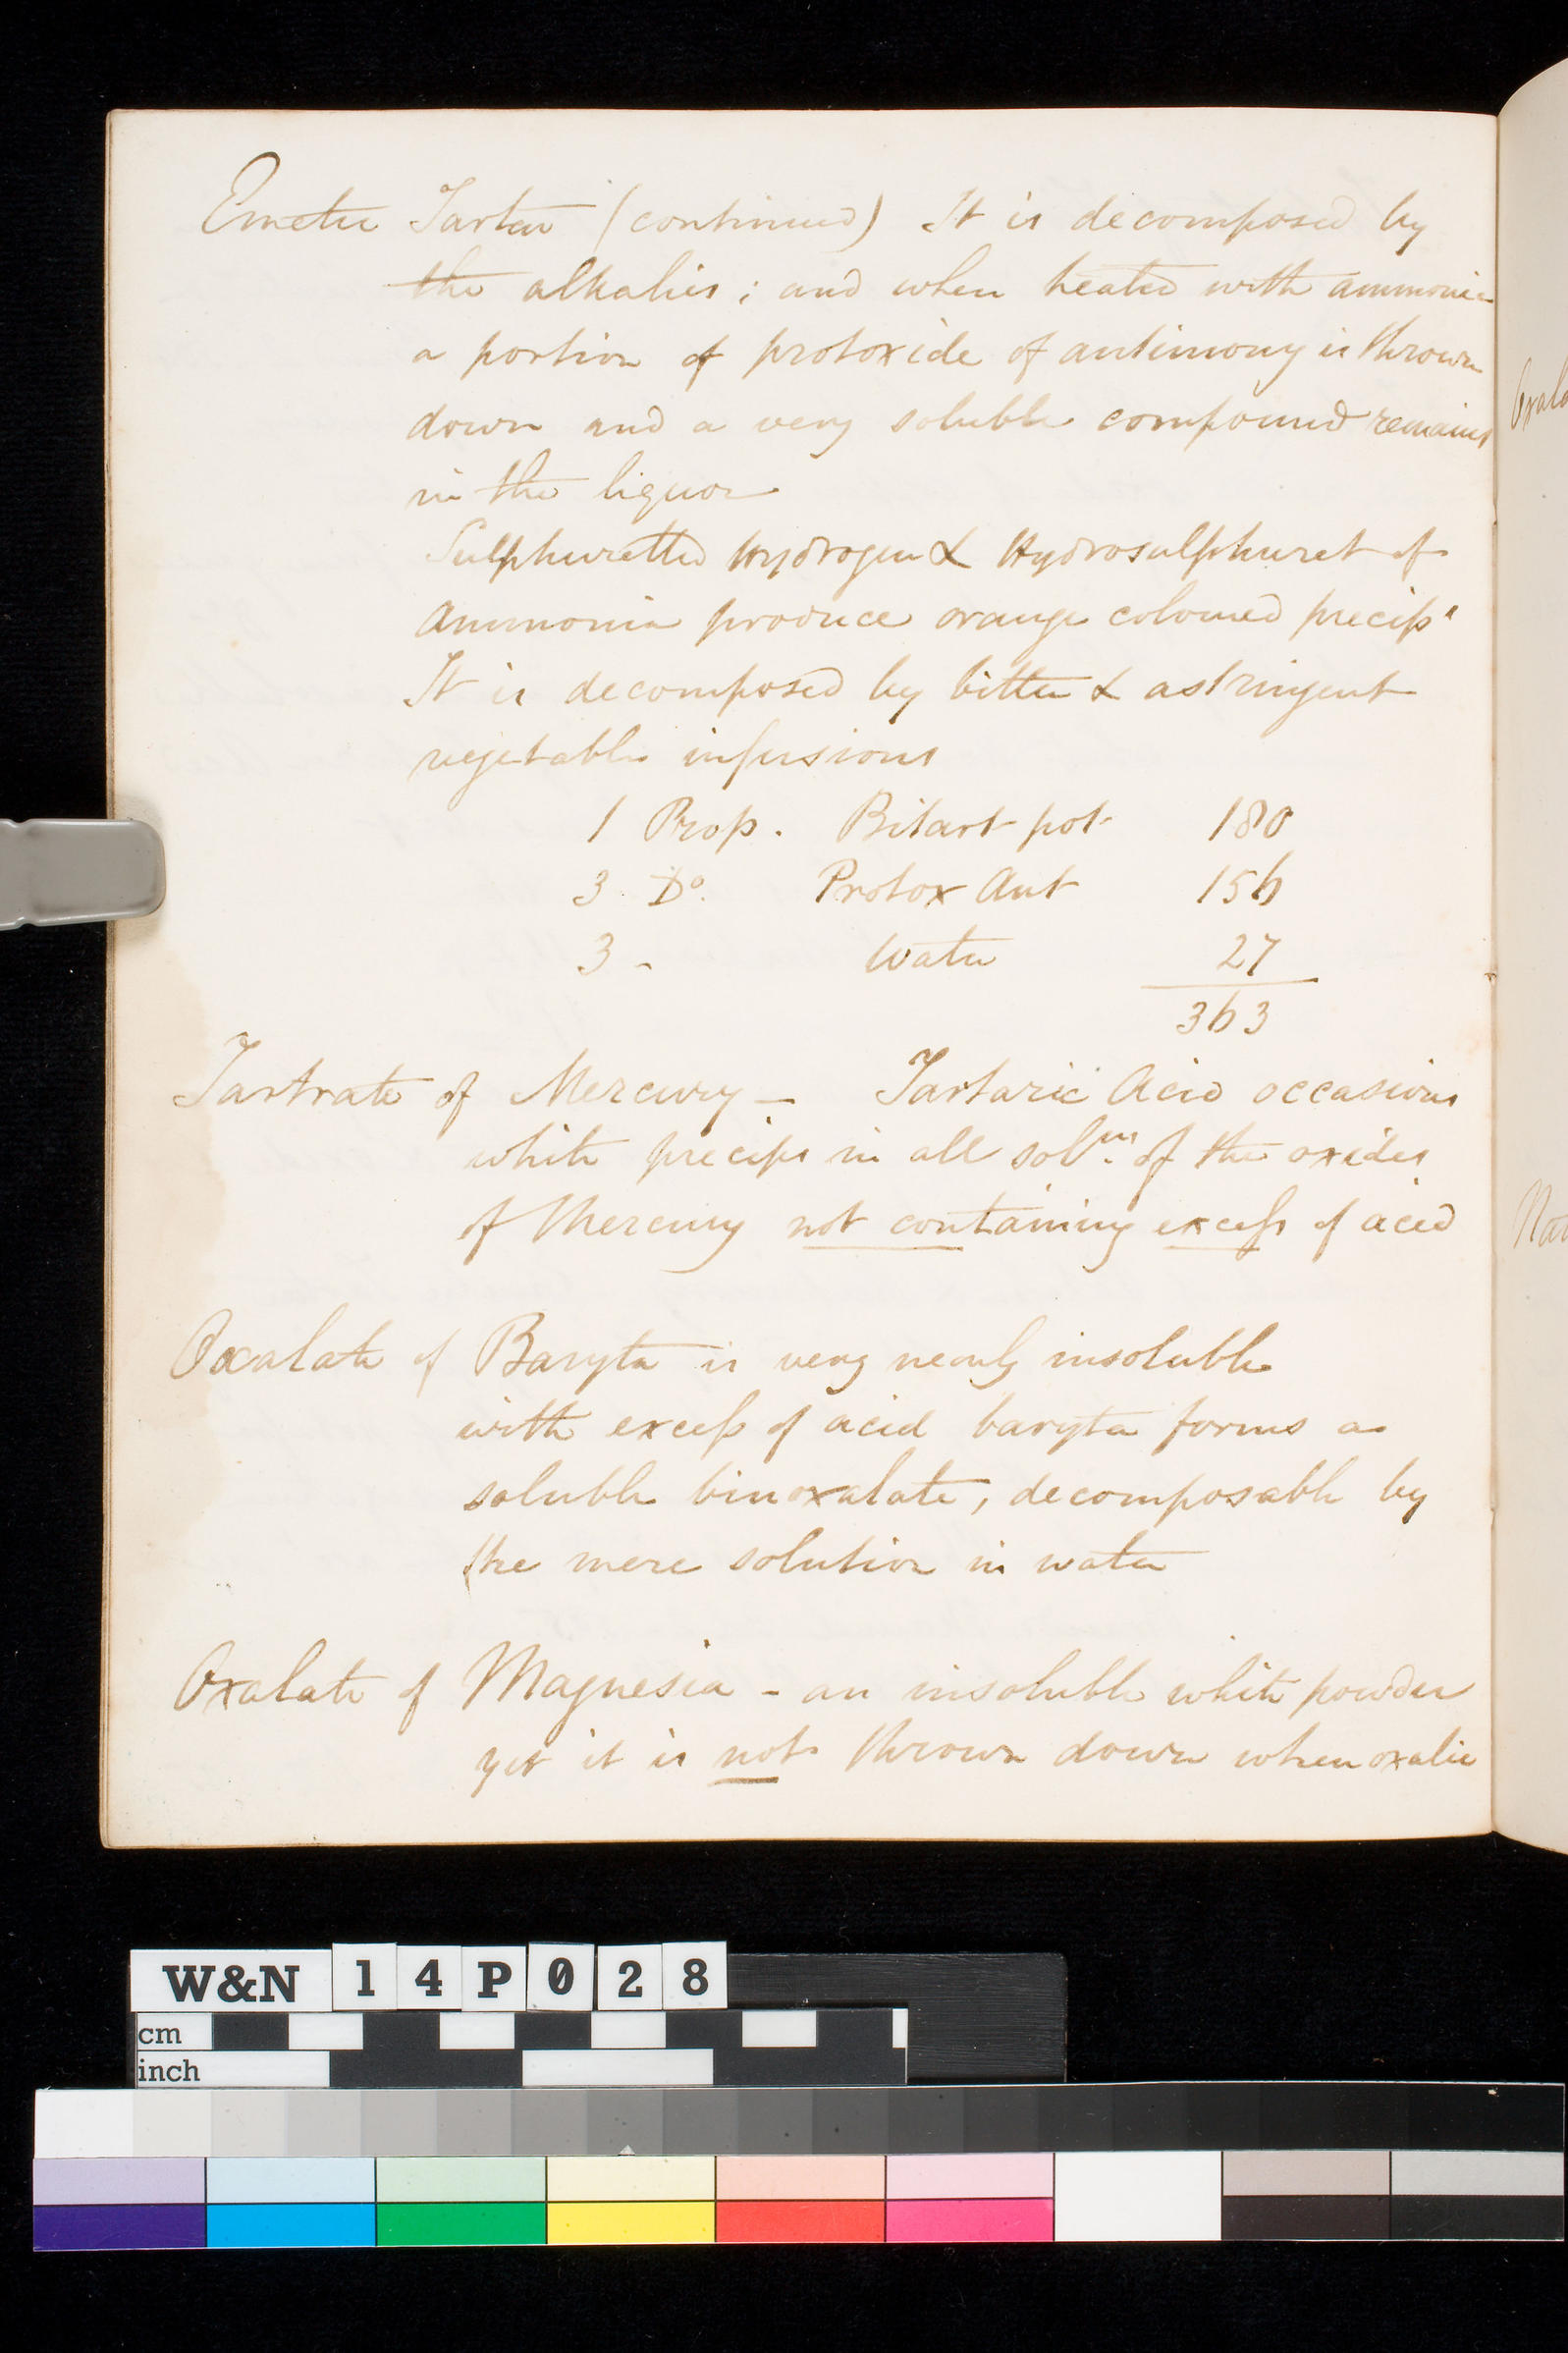 Emetic Tartar (continued) It is decomposed by
the alkalies; and when heated with ammonia
a portion of protoxide of antimony is thrown
down and a very soluble compound remains
in the liquor
Sulphuretted Hydrogen & Hydrosulphuret of
Ammonia produce orange coloured precips
It is decomposed by bitter & astringent
vegetable infusions
1 Prop. Bitart pot 180
3 Do. Protox Ant 156
3 - Water 27
363
Tartrate of Mercury - Tartaric Acid occasions
white precips in all solns. of the oxides
of Mercury not containing excess of acid
Oxalate of Baryta is very nearly insoluble
with excess of acid baryta forms a
soluble binoxalate, decomposable by
the mere solution in water
Oxalate of Magnesia - an insoluble white powder
yet it is not thrown down when oxalic
W&N 14P028
cm
inch